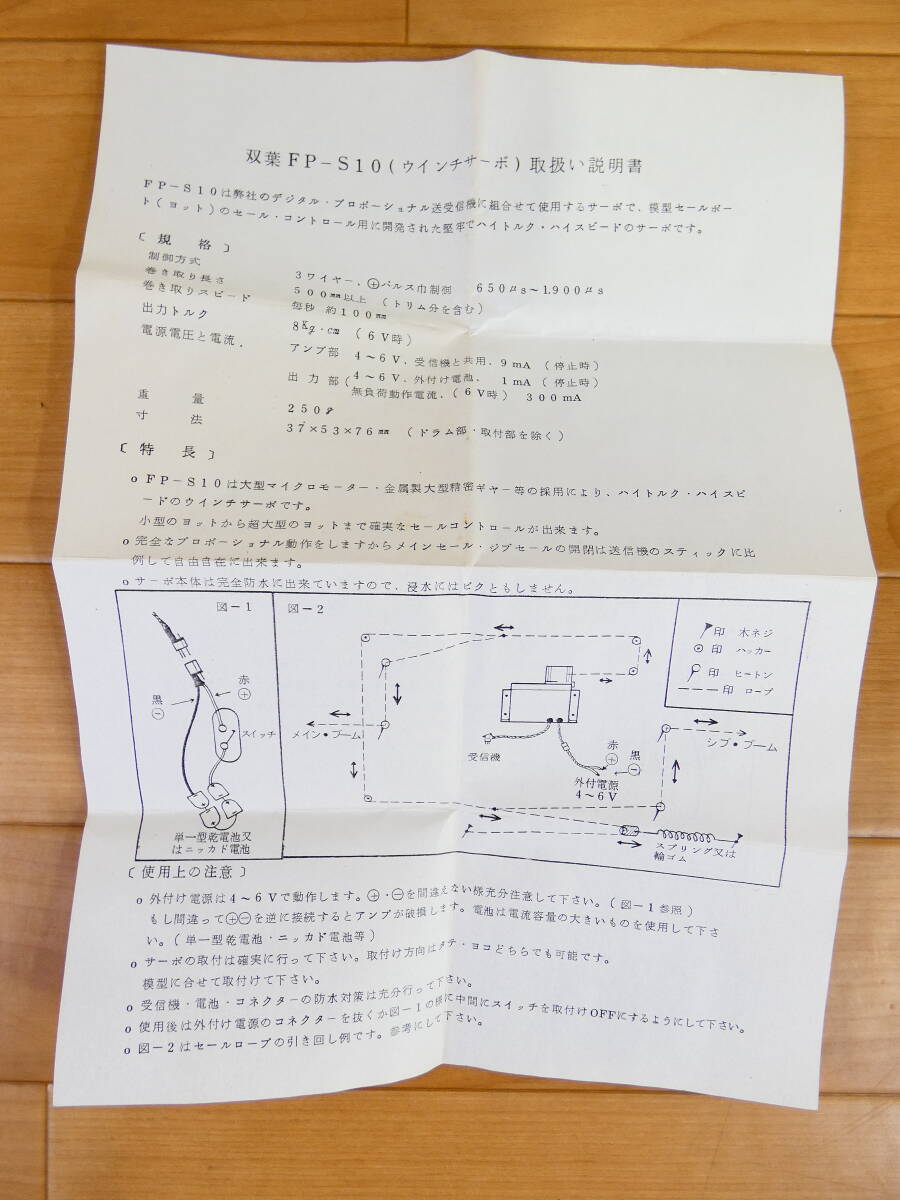 双葉FP-S10(ウインチサーボ)取扱い説明書
FP-S10は弊社のデジタル・プロポーショナル送受信機に組合せて使用するサーボで、模型セールボー
ト(ヨット)のセール・コントロール用に開発された堅牢でハイトルク・ハイスピードのサーボです。
〔規 格〕
制御方式 3ワイヤー、⊕パルス巾制御 650μs~1,900μs
巻き取り長さ 500㎜以上 (トリム分を含む)
巻き取りスピード 毎秒 約100㎜
出力トルク 8Kg・cm (6V時)
電源電圧と電流. アンプ部 4~6V、受信機と共用、9mA (停止時)
出力部(4~6V、外付け電池、 1mA (停止時)
無負荷動作電流、(6V時) 300mA
重 量 250g
寸 法 37×53×76㎜ (ドラム部・取付部を除く)
〔特 長〕
o FP-S10は大型マイクロモーター・金属製大型精密ギヤー等の採用により、ハイトルク・ハイスピ
ードのウインチサーボです。
小型のヨットから超大型のヨットまで確実なセールコントロールが出来ます。
o 完全なプロポーショナル動作をしますからメインセール・ジブセールの開閉は送信機のスティックに比
例して自由自在に出来ます。
o サーボ本体は完全防水に出来ていますので、浸水にはビクともしません。
図-1
赤
⊕
黒
⊖
スイッチ
単一型乾電池又
はニッカド電池
図-2
メイン・ブーム
受信機
赤
⊕
黒
⊖
外付電源
4~6V
シブ・ブーム
スプリング又は
輪ゴム
印 木ネジ
印 ハッカー
印 ヒートン
印 ロープ
〔使用上の注意〕
o 外付け電源は4~6Vで動作します。⊕・⊖を間違えない様充分注意して下さい。(図-1参照)
もし間違って⊕⊖を逆に接続するとアンプが破損します。電池は電流容量の大きいものを使用して下さ
い。(単一型乾電池・ニッカド電池等)
o サーボの取付は確実に行って下さい。取付け方向はタテ・ヨコどちらでも可能です。
模型に合せて取付けて下さい。
o 受信機・電池・コネクターの防水対策は充分行って下さい。
o 使用後は外付け電源のコネクターを抜くか図-1の様に中間にスイッチを取付けOFFにするようにして下さい。
o 図-2はセールロープの引き回し例です。参考にして下さい。